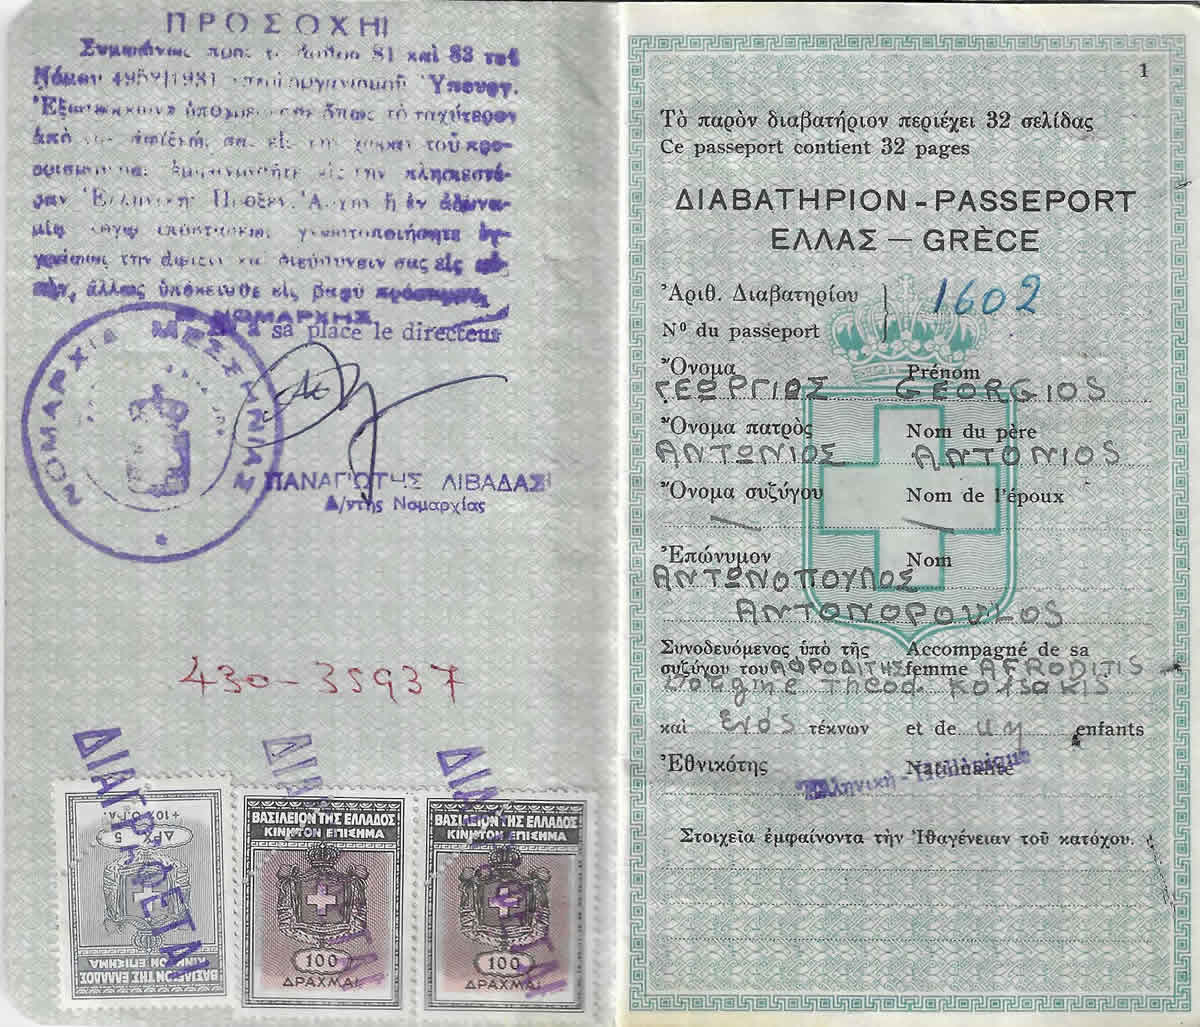 ΠΡΟΣΟΧΗ!
Συμφώνως πρὸς τὰ ἄρθρα 81 καὶ 83 τοῦ
Νόμου 4952/1931 ὀργανισμοῦ Ὑπουργ.
Ἐξωτερικῶν ὅπως τὸ ταχύτερον
ἀπὸ τὴν ἄφιξίν σας εἰς τὴν χώραν τοῦ προ-
ορισμοῦ σας ἐμφανισθῆτε εἰς τὴν πλησιεστέ-
ραν Ἑλληνικὴν Προξεν. Ἀρχὴν ἢ ἐν ἀδυνα-
μίᾳ λόγῳ ἀποστάσεως γνωστοποιήσητε ἐγ-
γράφως τὴν ἄφιξιν καὶ διεύθυνσίν σας εἰς αὐ-
τήν, ἄλλως ὑπόκεισθε εἰς βαρὺ πρόστιμον.
ΝΟΜΑΡΧΗΣ
à sa place le directeur
ΝΟΜΑΡΧΙΑ ΜΕΣΣΗΝΙΑΣ
ΠΑΝΑΓΙΩΤΗΣ ΛΙΒΑΔΑΣ
Δ/ντὴς Νομαρχίας
430-35937
ΔΙΑΓΡΑΦΕΤΑΙ
5 ΔΡΧ
ΒΑΣΙΛΕΙΟΝ ΤΗΣ ΕΛΛΑΔΟΣ
ΚΙΝΗΤΟΝ ΕΠΙΣΗΜΑ
ΒΑΣΙΛΕΙΟΝ ΤΗΣ ΕΛΛΑΔΟΣ
ΚΙΝΗΤΟΝ ΕΠΙΣΗΜΑ
100
ΔΡΑΧΜΑΙ
ΒΑΣΙΛΕΙΟΝ ΤΗΣ ΕΛΛΑΔΟΣ
ΚΙΝΗΤΟΝ ΕΠΙΣΗΜΑ
100
ΔΡΑΧΜΑΙ
1
Τὸ παρὸν διαβατήριον περιέχει 32 σελίδας
Ce passeport contient 32 pages
ΔΙΑΒΑΤΗΡΙΟΝ - PASSEPORT
ΕΛΛΑΣ — GRÈCE
Ἀριθ. Διαβατηρίου 1602
Nº du passeport
Ὄνομα Prénom
ΓΕΩΡΓΙΟΣ GEORGIOS
Ὄνομα πατρὸς Nom du père
ΑΝΤΩΝΙΟΣ ANTONIOS
Ὄνομα συζύγου Nom de l'époux
Ἐπώνυμον Nom
ΑΝΤΩΝΟΠΟΥΛΟΣ
ANTONOPOULOS
Συνοδευόμενος ὑπὸ τῆς Accompagné de sa
συζύγου του ΑΦΡΟΔΙΤΗΣ femme AFRODITIS
Theod. Kotsakis
καὶ ενός τέκνων et de un enfants
Ἐθνικότης Nationalité
Ἑλληνικὴ - Hellénique
Στοιχεῖα ἐμφαίνοντα τὴν Ἰθαγένειαν τοῦ κατόχου.